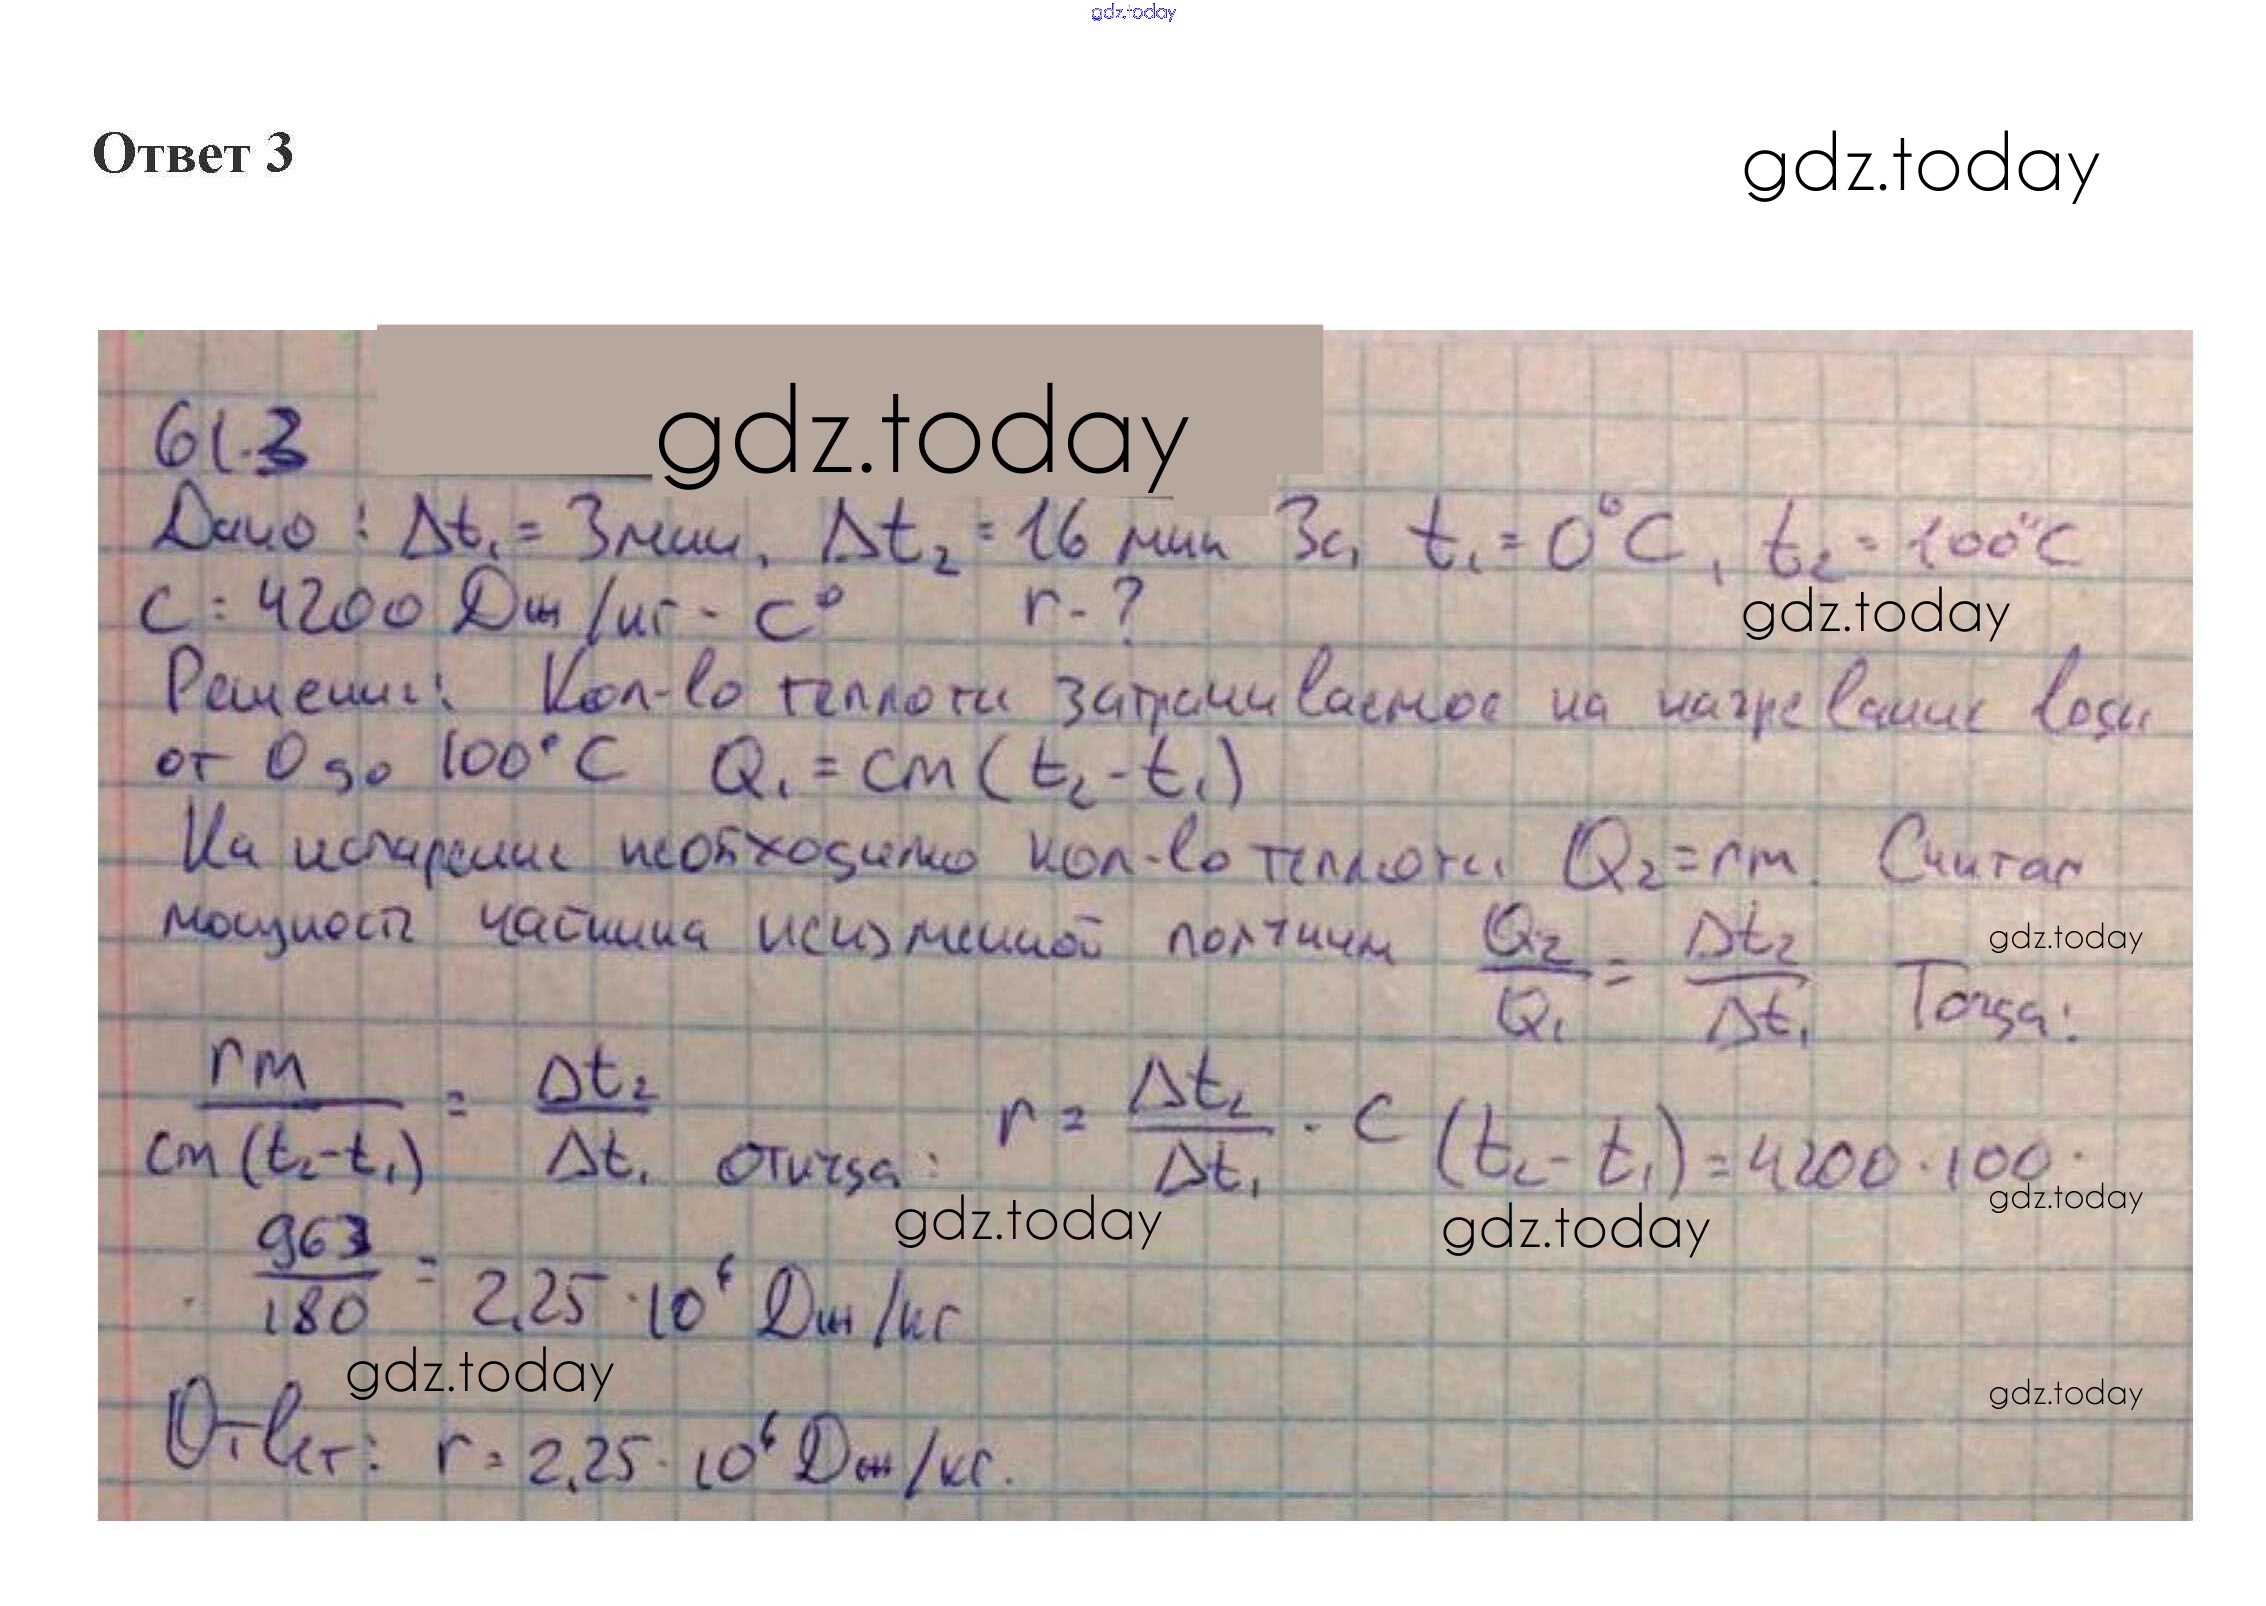 gdz.today
Ответ 3
gdz.today
gdz.today
61.3
Дано: Δt₁ = 3 мин, Δt₂ = 16 мин 3с, t₁ = 0°C, t₂ = 100°C
gdz.today
c = 4200 Дж/кг · C° r - ?
Решение: Кол-во теплоты затрачиваемое на нагревание воды
от 0 до 100°C Q₁ = cm(t₂ - t₁)
На испарение необходимо кол-во теплоты Q₂ = rm. Считая
мощность чайника неизменной получим Q₂/Q₁ = Δt₂/Δt₁ Тогда:
gdz.today
rm/cm(t₂-t₁) = Δt₂/Δt₁ отсюда: r = Δt₂/Δt₁ · c (t₂ - t₁) = 4200 · 100 ·
gdz.today
gdz.today gdz.today
· 963/180 = 2,25 · 10⁶ Дж/кг
gdz.today
gdz.today
Ответ: r = 2,25 · 10⁶ Дж/кг.